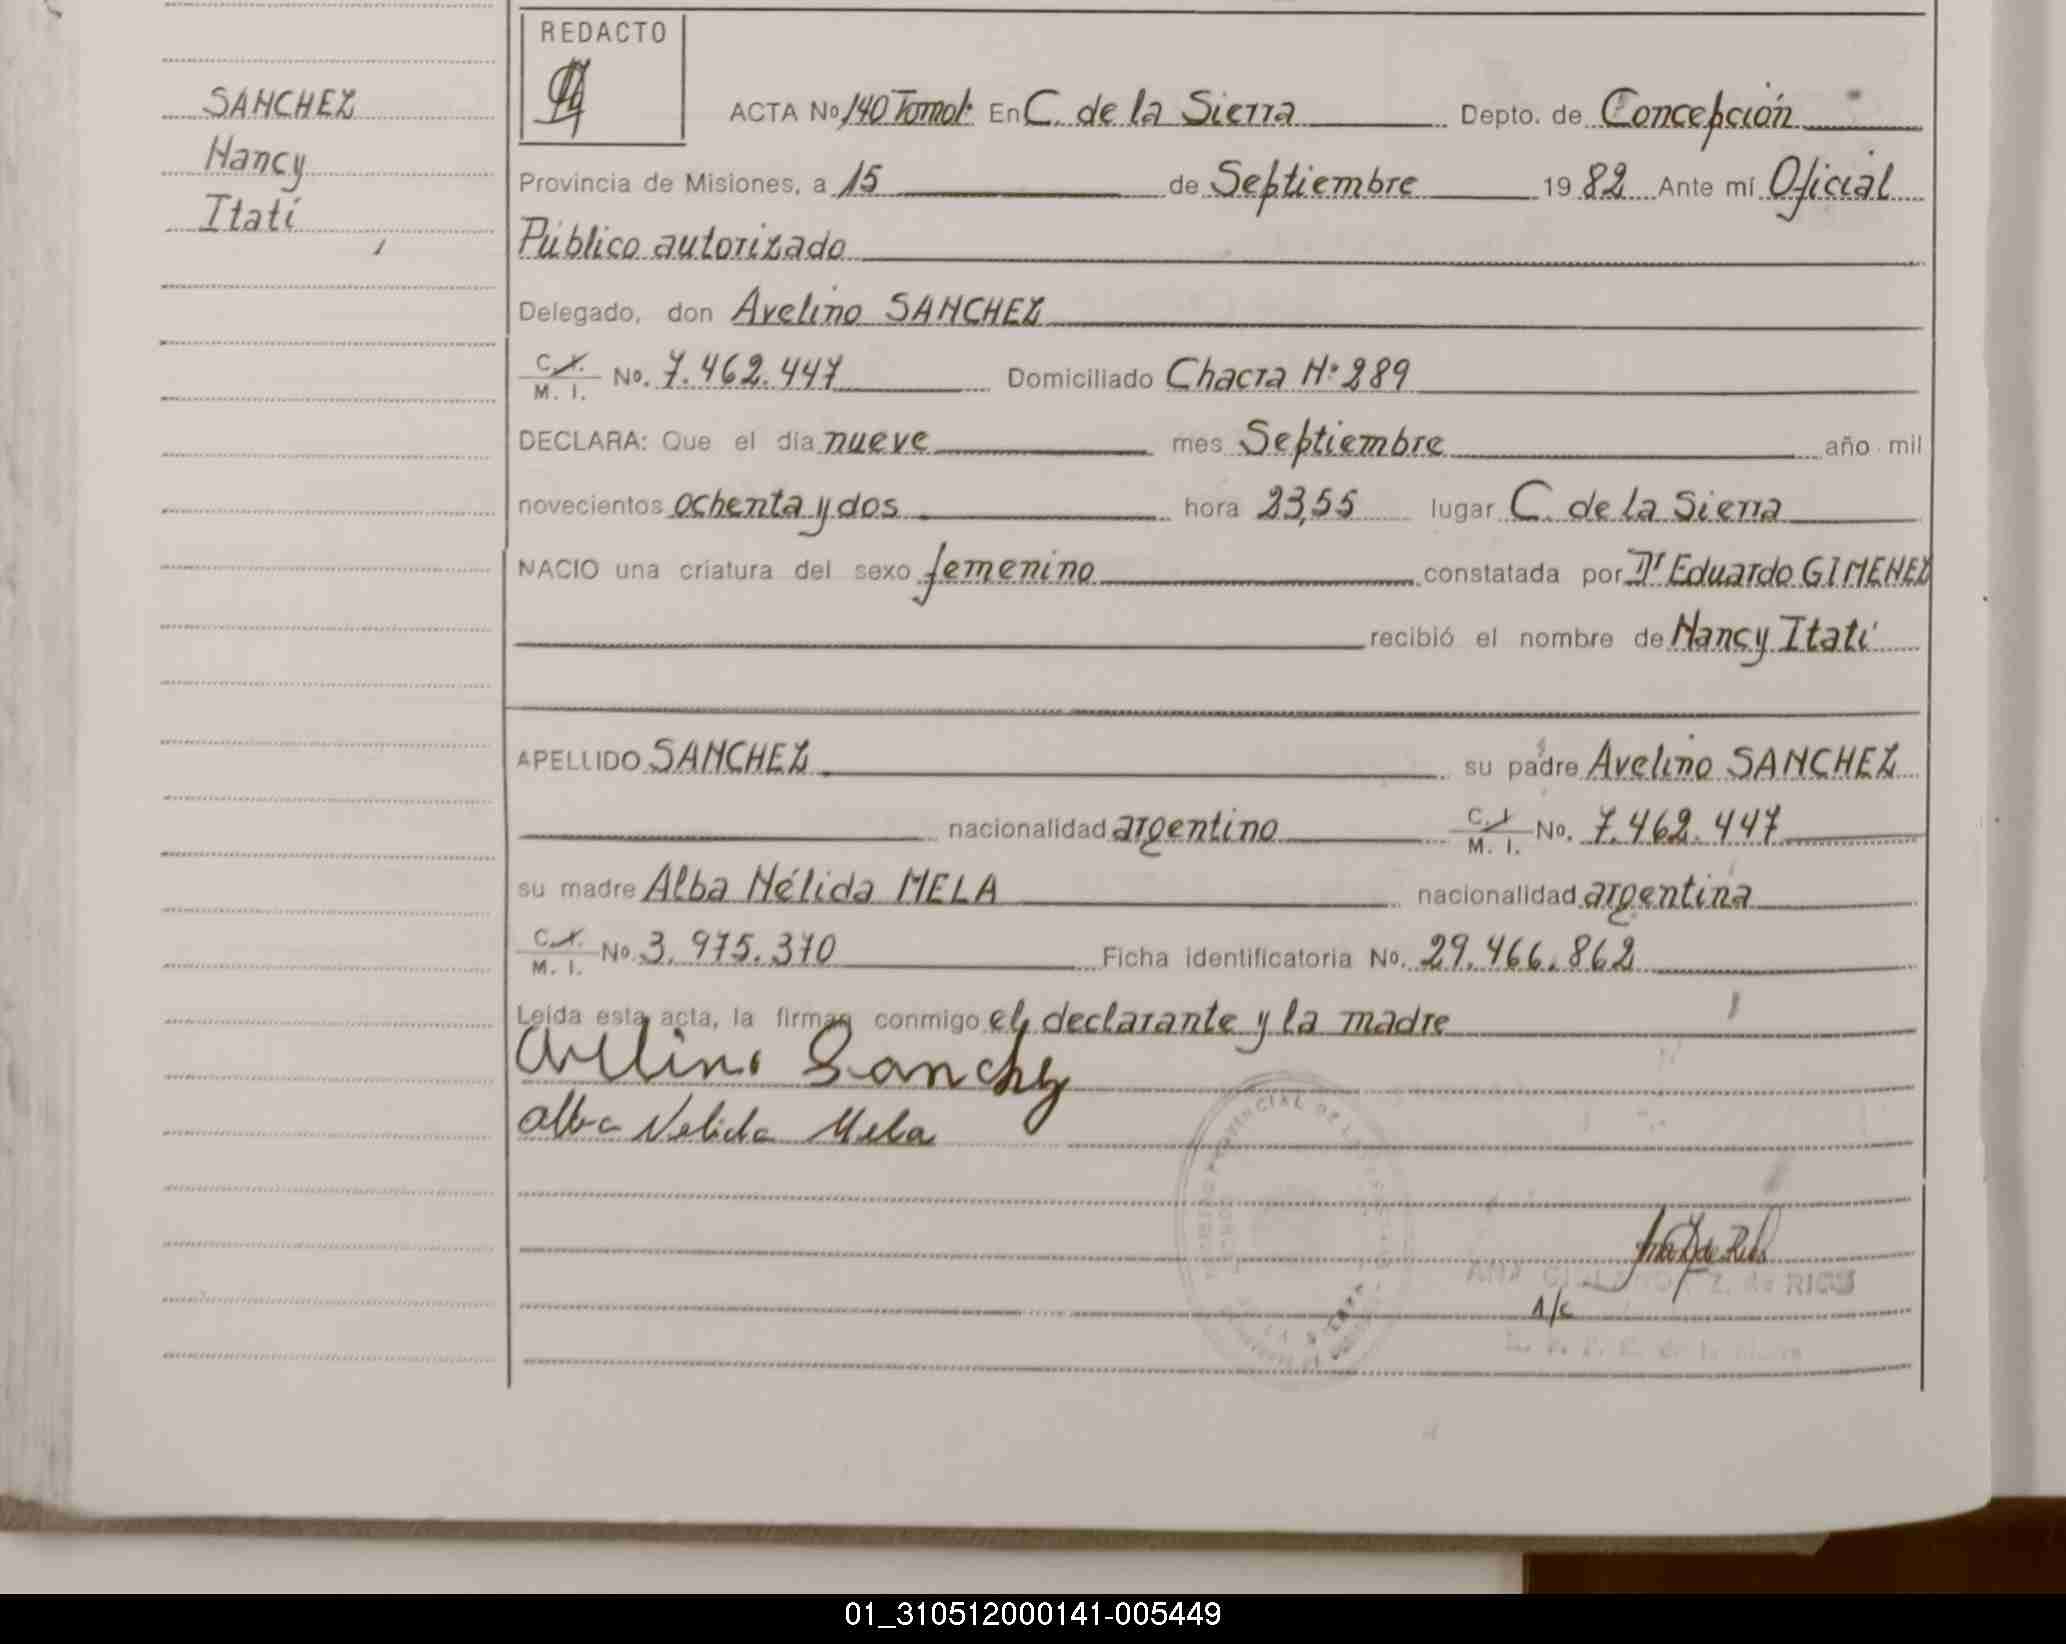 REDACTO
SANCHEZ
Nancy
Itatí
ACTA No 140 Tomo I: En C. de la Sierra Depto. de Concepción
Provincia de Misiones, a 15 de Septiembre 1982 Ante mí Oficial
Público autorizado
Delegado, don Avelino SANCHEZ
C. I. / M. I. No. 7.462.447 Domiciliado Chacra Nº 289
DECLARA: Que el día nueve mes Septiembre año mil
novecientos ochenta y dos hora 23,55 lugar C. de la Sierra
NACIO una criatura del sexo femenino constatada por Dr Eduardo GIMENEZ
recibió el nombre de Nancy Itatí
APELLIDO SANCHEZ su padre Avelino SANCHEZ
nacionalidad argentino C. I. / M. I. No. 7.462.447
su madre Alba Nélida MELA nacionalidad argentina
C. I. / M. I. No. 3.975.370 Ficha identificatoria No. 29.466.862
Leída esta acta, la firman conmigo el declarante y la madre
Avelino Sanchez
Alba Nelida Mela
de RIOS
A/c
01_310512000141-005449